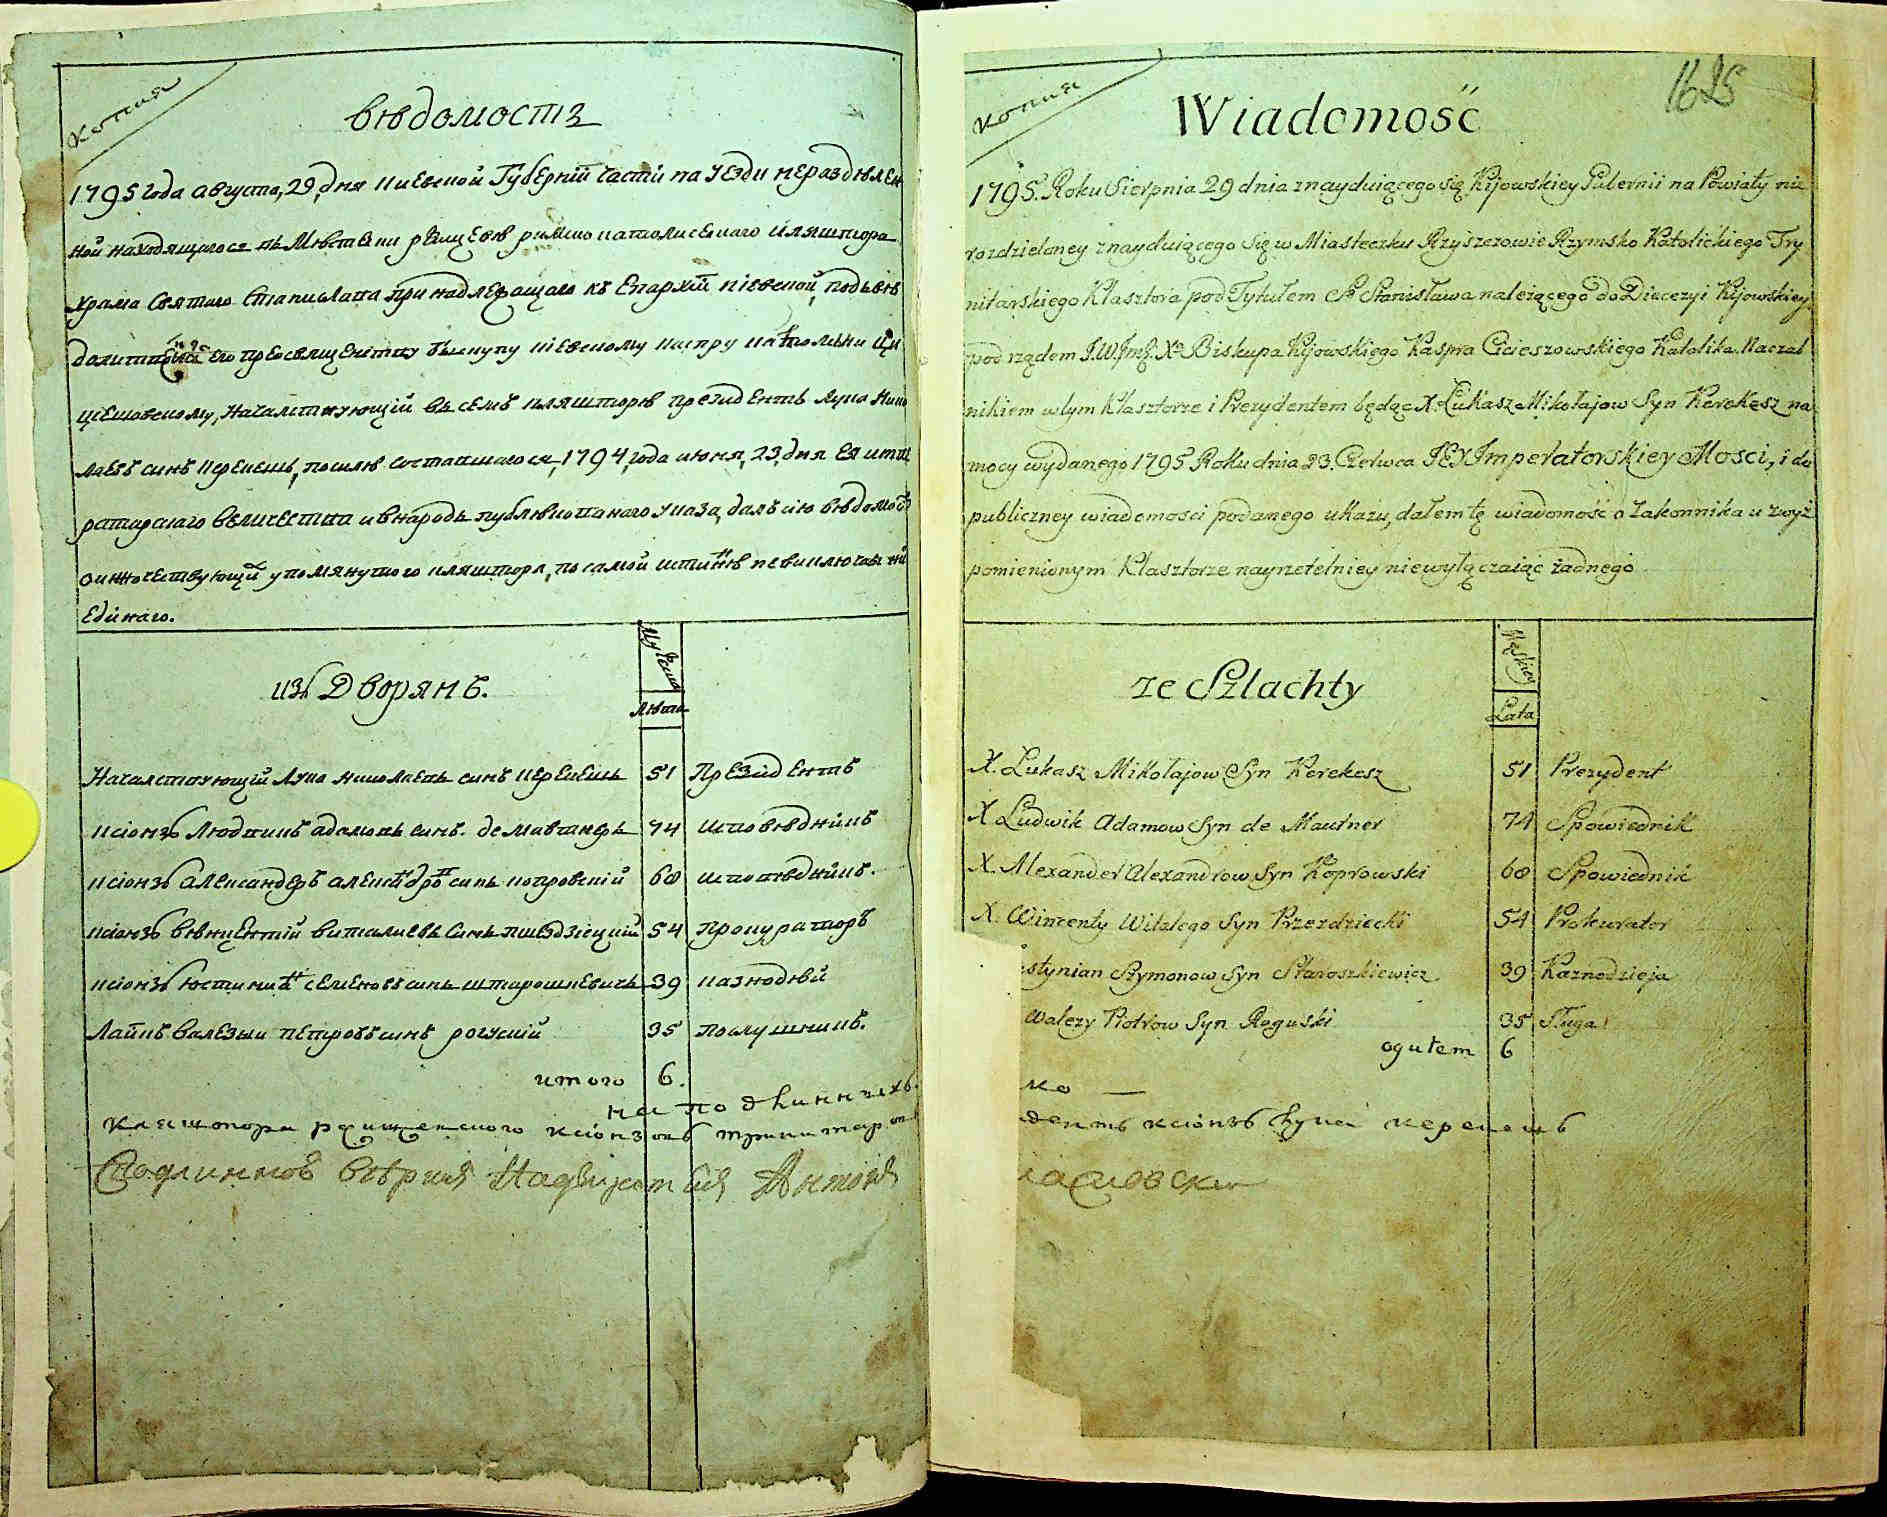 копия
вѣдомостъ
1795 года августа, 29, дня киевской Губерніи части на уезди нераздѣлен
ной находящагося въ Мѣстечки ржищевѣ римско католического кляштора
храма Святаго Станислава принадлежащаго къ Епархіи кіевской, подъ вѣ
его преосвященству бискупу кіевскому каспру
цѣшовскому, Началствующій въ семъ кляшторѣ президентъ Лука Нико
лаевъ синъ керекешъ, посилѣ состоявшагося, 1794, года июня, 23, дня Ея импе
раторскаго величества и внародъ публѣкованаго указа, далъ сію вѣдомость
оиночествующій упомянутого кляштора, по самой истиннѣ невиключая ни
единаго.
изъ Дворянъ.
Мужеска
лѣта
Началствующій Лука николаевъ синъ керекешъ 51 Президентъ
ксіонзъ Людвикъ адамовъ синъ де мавтнеръ 74 исповѣдникъ
ксіонзъ александеръ александровъ синъ копровскій 68 исповѣдникъ.
ксіонзъ вѣнцентій виталиевъ синъ пшездзіецкій 54 прокураторъ
ксіонзъ юстиниянъ семеновъ синъ старошкевичъ 39 казнодѣй
Лаикъ валезыи петровъ синъ рогускій 35 послушникъ.
итого 6.
на подлинныхъ
кляштора ржищевского ксіонзовъ тринитаровъ
Антоній
копия
1625
Wiadomość
1795. Roku Sierpnia 29 dnia znayduiącego się Kijowskiey Gubernii na Powiaty nie
rozdzieloney znayduiącego się w Miasteczku Rzyszczowie Rzymsko Katolickiego Try
nitarskiego Klasztora pod Tytułem S° Stanisława należącego do Diecezyi Kijowskiey,
pod rządem J.W. Jmę. Xa Biskupa Kijowskiego Kaspra Cieciszowskiego Katolika. Naczal
nikiem w tym Klasztorze i Prezydentem będąc X. Łukasz Mikołajow Syn Kerekesz na
mocy wydanego 1795 Roku dnia 23. Czerwca JEY Imperatorskiey Mości, i do
publiczney wiadomosci podanego ukazu, dałem tę wiadomość o Zakonnika u zwyż
pomienionym Klasztorze nayrzetelniey niewyłączaiąc żadnego
ze Szlachty
Męskiey
Lata
X. Łukasz Mikołajow Syn Kerekesz 51 Prezydent
X Ludwik Adamow Syn de Mautner 74 Spowiednik
X. Alexander Alexandrow Syn Koprowski 68 Spowiednik
X. Wincenty Witalego Syn Przezdziecki 54 Prokurator
stynian Szymonow Syn Staroszkiewicz 39 Kaznodzieja
Walezy Piotrow Syn Roguski 35 Sługa
ogułem 6
ко
дентъ ксіонзъ лука керекешъ